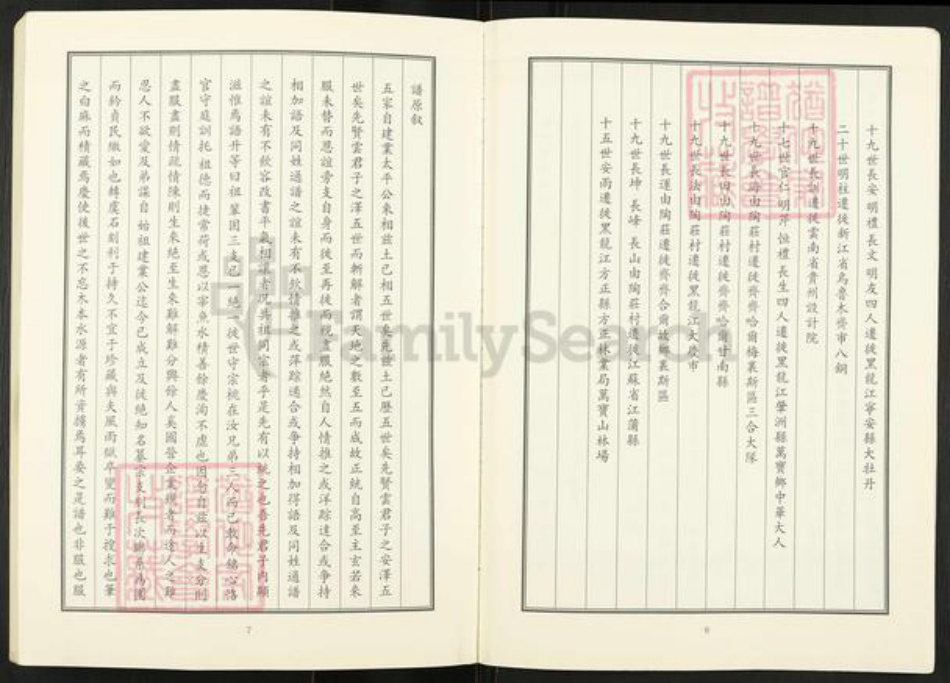 十九世長安 明禮 長文 明友四人遷徙黑龍江寧安縣大牡丹
二十世明柱遷徙新江省烏魯木齊市八鋼
十九世長訓遷徙雲南省貴州設計院
十七世官仁 明芹 恒禮 長生四人遷徙黑龍江肇洲縣萬寶鄉中華大人
十九世長海由陶莊村遷徙齊齊哈爾梅裏斯區三合大隊
十九世長田由陶莊村遷徙齊齊哈爾甘南縣
十九世長法由陶莊村遷徙黑龍江大慶市
十九世長運由陶莊遷徙齊齊合爾故鄉裏斯區
十九世長坤 長峰 長山由陶莊村遷徙江蘇省江蒲縣
十五世安雨遷徙黑龍江方正縣方正林業局萬寶山林場
6
譜原叙
五家自建業太平公來相茲土已相五世矣先茲土已歷五世矣先賢雲君子之安澤五
世矣先賢雲君子之澤五世而斬解者謂天地之數至五而成故正統自高至主玄若來
服未替而恩誼旁支自身而徙至再徙而税盡服絶然自人情推之或洋踪達合或爭持
相加語及同姓通譜之誼未有不歡情推之或萍踪適合或爭持相加得語及同姓通譜
之誼未有不歡容改書平氣相讓者況共祖同宗者乎是先有以統之也吾先君子内顧
滋惟爲語升等曰祖輩因三支已一絶一徙世守宗祧在汝兄弟三人而已敢命銘心洛
官守庭訓托祖德而捷常荷或恩以宰魚水積善餘慶洵不虛也因念自茲以生支分則
盡服盡則情疏情陳則生來絶至生來難解難分興餘人矣國晉企業積者而達人之難
忍人不欲愛及弟謀自始祖建業公迄今已成立及徙絶知名纂宗支别長次聯系爲圖
而鈐貞民繳如也棘虞石刻利于持久不宜于珍藏與夫風雨獄卒變而難于搜求也筆
之白麻而積藏焉慶使後世之不忘木本水源者有所資籍焉耳要之是譜也非服也服
7
FamilySearch